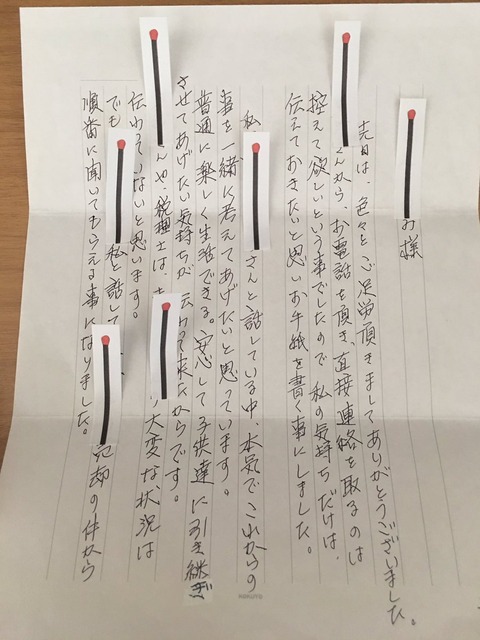 み様
先日は、色々とご足労頂きましてありがとうございました。
さんから、お電話を頂き、直接連絡を取るのは
控えて欲しいという事でしたので、私の気持ちだけは、
伝えておきたいと思いお手紙を書く事にしました。
私 さんと話している中、本気でこれからの
事を一緒に考えてあげたいと思っています。
普通に楽しく生活できる。安心して子供達に引き継ぎ
させてあげたい気持ちが 伝わって来たからです。
さんや、税理士は、 大変な状況は
伝わらないと思います。
でも 私と話して 却の件から
順番に聞いてもらえる事になりました。
KOKUYO